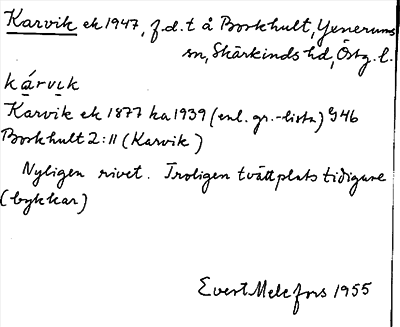 Karvik ek 1947, f.d.t å Borkhult, Yxnerums
sn, Skärkinds hd, Östg. l.
kárvik
Karvik ek 1877 ha 1939 (enl. gr.-lista) G46
Borkhult 2:11 (Karvik)
Nyligen rivet. Troligen tvättplats tidigare
(bykkar)
Evert Melefors 1955